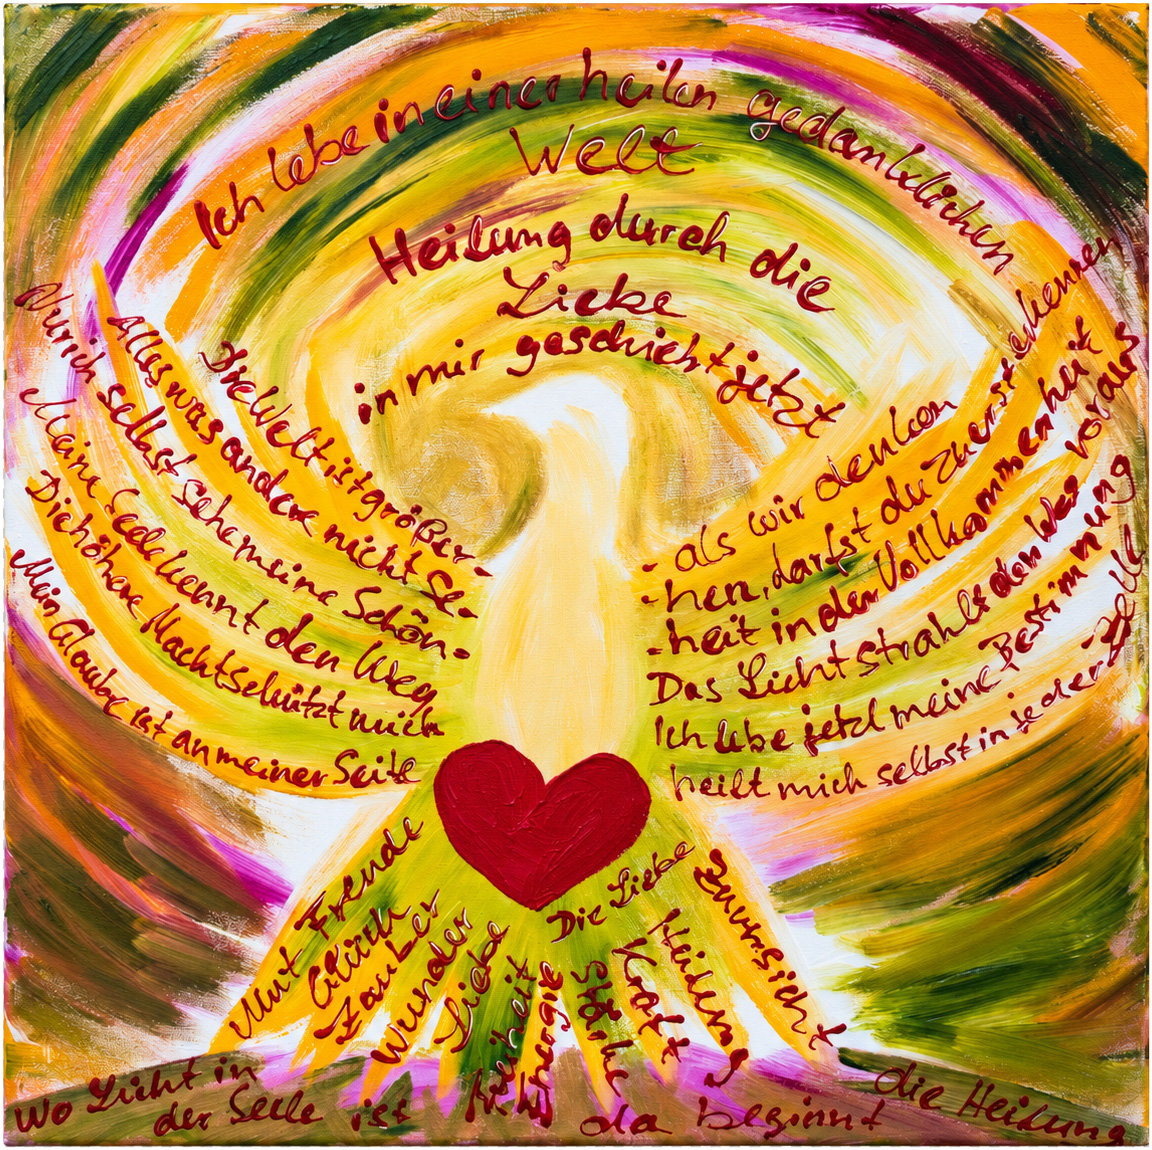 Ich lebe in einer heilen gedanklichen
Welt
Heilung durch die
Liebe
in mir geschieht jetzt
Die Welt ist größer-
- als wir denken
Alles was andere nicht se-
-hen, darfst du zuerst erkennen
Nur ich selbst seh meine Schön-
-heit in der Vollkommenheit
Meine Seele kennt den Weg
Das Licht strahlt den Weg voraus
Die höhere Macht schützt mich
Ich lebe jetzt meine Bestimmung
Mein Glaube ist an meiner Seite
Die Liebe
heilt mich selbst in jeder Zelle
Mut Freude
Glück
Zauber
Wunder
Liebe
Freiheit
Energie
Stärke
Kraft
Heilung
Zuversicht
Wo Licht in
der Seele ist da beginnt
die Heilung